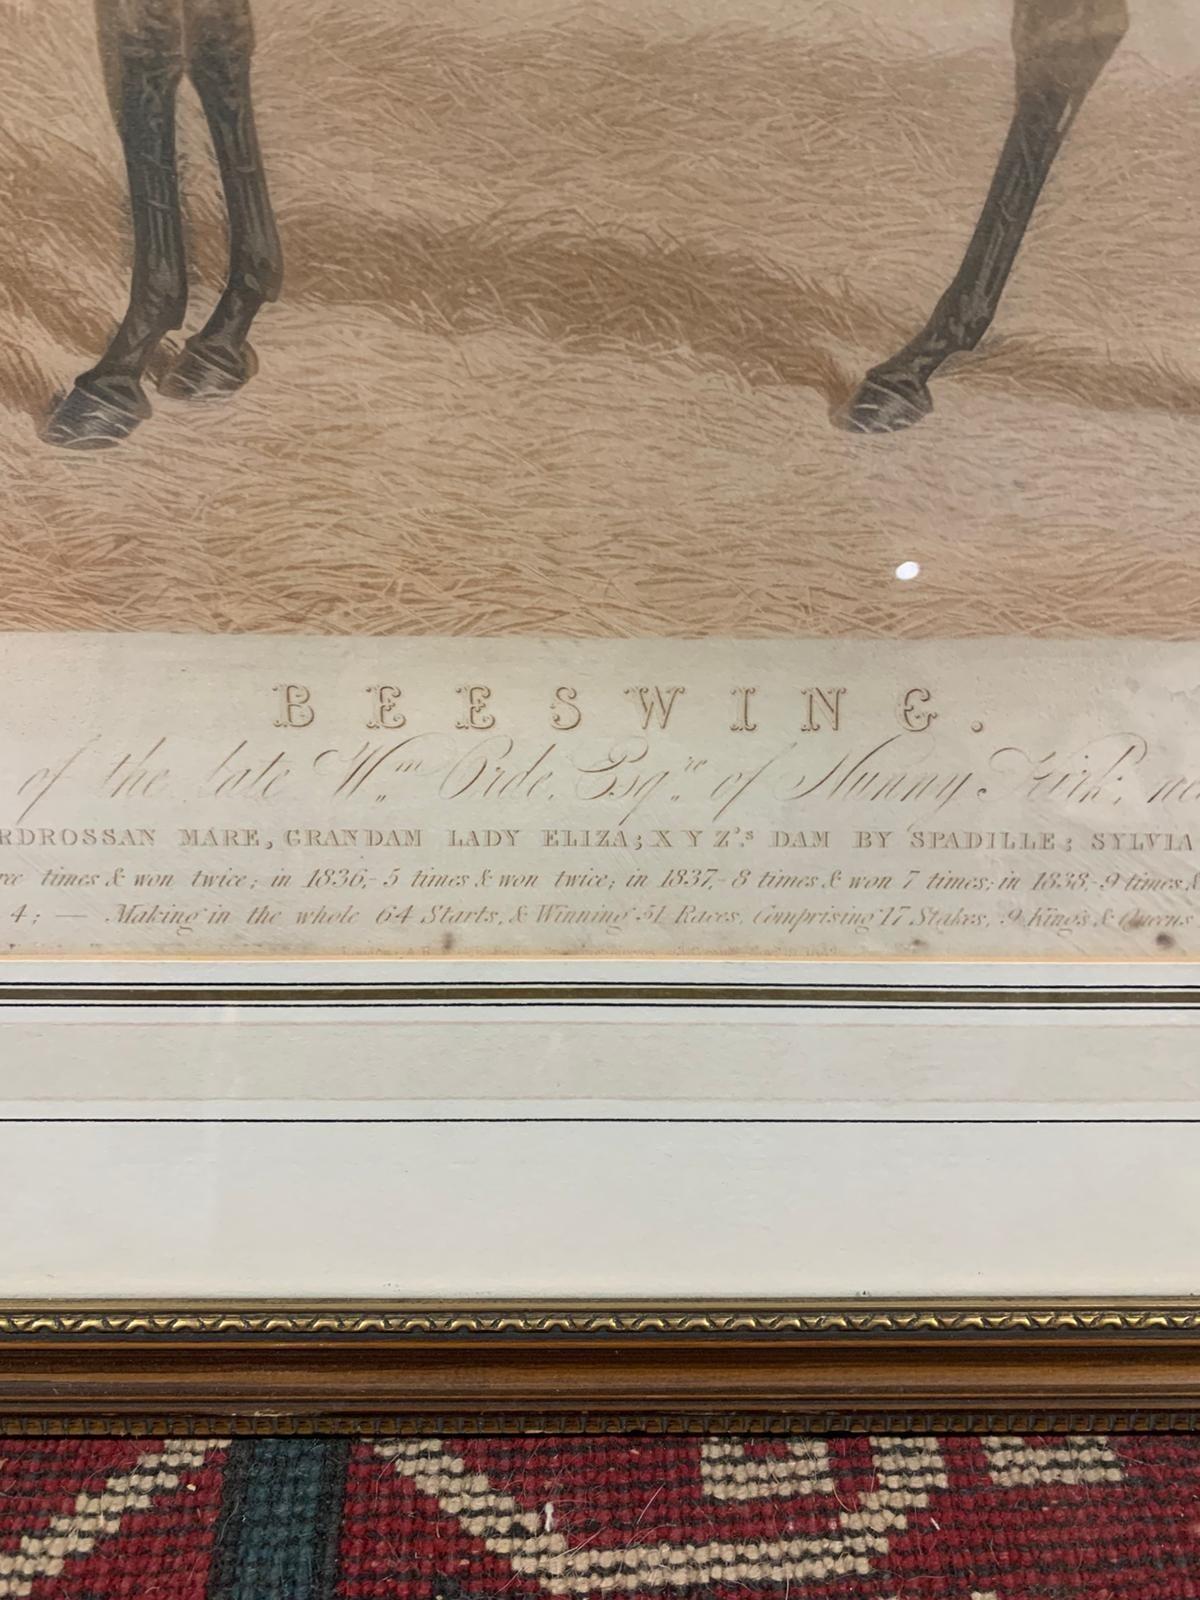 BEESWING.
of the late Wm. Orde, Esqre. of Nunny Kirk,
RDROSSAN MARE, GRANDAM LADY ELIZA; X Y Z's DAM BY SPADILLE; SYLVIA
ree times & won twice; in 1836,-5 times & won twice; in 1837,-8 times & won 7 times; in 1838,-9 times &
4; — Making in the whole 64 Starts, & Winning 51 Races, Comprising 17 Stakes, 9 King's & Queens